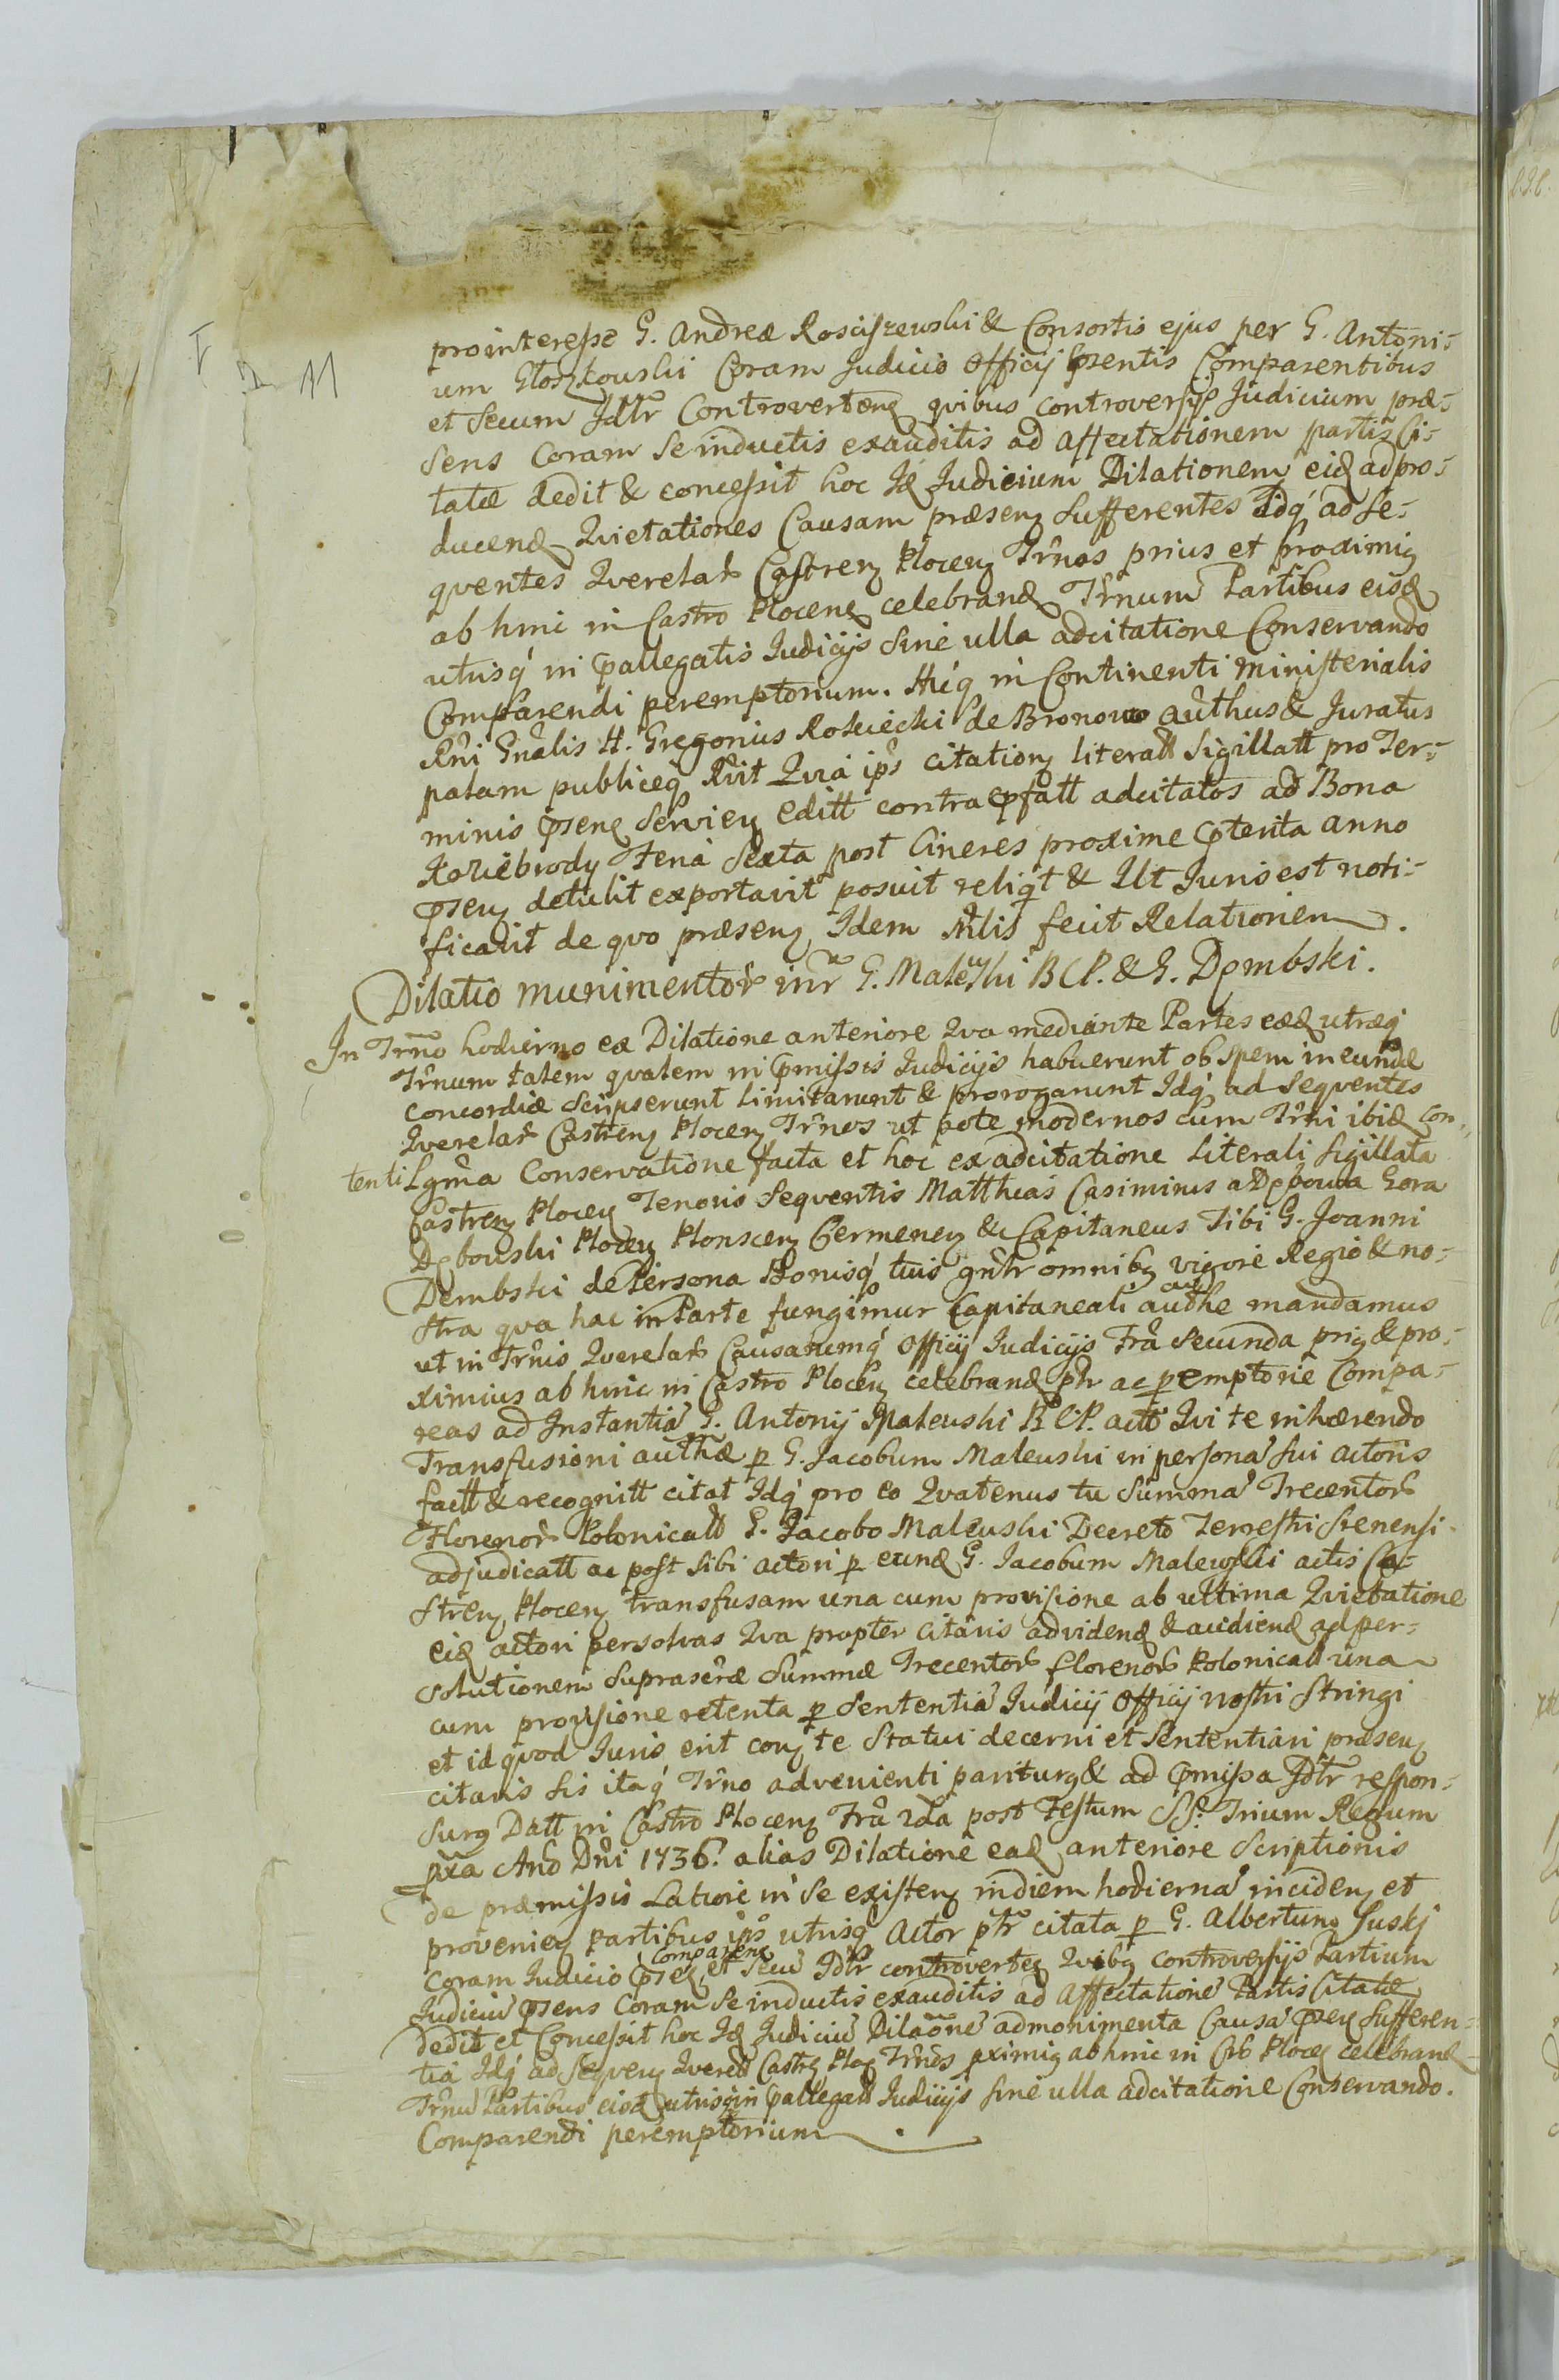 I 2 11
pro interesse G. Andreæ Rosciszewski & Consortis ejus per G. Antoni-
um Głoszkowski Coram Judicio Officij prentis Comparentibus
et secum Jdtr Controverten quibus controversijs Judicium præ-
sens Coram se inductis exauditis ad affectationem partis Ci-
tatæ dedit & concessit hoc Id Judicium Dilationem eid ad pro-
ducend Qvietationes Causam præsen Sufferentes Idq ad se-
qventes Qverelar Castren Plocen Trnos prius et proximiq
ab hinc in Castro Plocen celebrand Trnum Partibus eisd
utrisq in pallegatis Judicijs sine ulla adcitatione Conservando
Comparendi peremptorium. Hicq in Continenti ministerialis
Rni Gnalis H. Gregorius Rościecki de Bronowo authus & Juratus
palam publiceq Rvit Qvia ips citation literall Sigillatt pro Ter-
minis psen servien editt contra pfatt adcitatos ad Bona
Koziebrody Feria Sexta post Cineres proxime pterita anno
psen detulit exportavit posuit reliqt & Ut Juris est noti-
ficavit de qvo præsen Idem Mlis fecit Relationem.
Dilatio munimentor intr G. Malewski B C P. & G. Dembski.
In Trno hodierno ex Dilatione anteriore Qva mediante Partes eæd utræq
Trnum talem qvalem in pmissis Judicijs habuerunt ob Spem ineundæ
concordiæ scripserunt limitarunt & prorogarunt Idq ad Seqventes
Qverelar Castren Plocen Trnos ut pote modernos cum Trni ibid con-
tenti Lgma Conservatione facta et hoc ex adcitatione Literali Sigillata
Castren Plocen Tenoris Seqventis Matthias Casimirus a Dębowa Gora
Dębowski Plocen Plonscen Cermenen & Capitaneus Tibi G. Joanni
Dembski de Persona Bonisq tuis gnltr omnibq vigore Regio & no-
stra qva hac in Parte fungimur Capitaneali authe mandamus
ut in Trnis Qverelar Causarumq Officij Judicijs Fra Secunda priq & pro-
ximius ab hinc in Castro Plocen celebrand ptr ac p emptorie Compa-
reas ad Instantia G. Antonij Malewski B C P. acto Qvi te inhærendo
Transfusioni authæ p G. Jacobum Malewski in persona sui actoris
factt & recognitt citat Idq pro eo Qvatenus tu Summa Trecentor
Florenor Polonicall G. Jacobo Malewski Decreto Terrestri Srenensi
adjudicatt ac post sibi actori p eund G. Jacobum Malewski actis Ca-
stren Plocen transfusam una cum provisione ab ultima Qvietatione
eid actori persolvas Qva propter citaris ad videnđ & audiend ad per-
solutionem suprascræ Summæ Trecentor florenor Polonicall una
cum provisione retenta p Sententia Judicij Officij nostri Stringi
et id qvod Juris erit con te Statui decerni et Sententiari præsen
citaris sis itaq Trno advenienti pariturq & ad pmissa Jdtr respon-
surq Datt in Castro Plocen Fra 2da post Festum SS. Trium Regum
pxa Ano Dni 1736. alias Dilatione ead anteriore Scriptionis
de præmissis Latiore in se existen in diem hodierna inciden et
provenien Partibus ips utrisq Actor ptr citata p G. Albertum Suskj
Coram Judicio psen Comparent et secu Jdtr controverten Qvibq controversijs Partium
Judiciu psens Coram se inductis exauditis ad affectatione Partis Citatæ
Dedit et Concessit hoc Id Judiciu Dilaone ad monimenta Causa psen Sufferen-
tia Idq ad Seqven Qverell Castren Ploc Trnos pximiq ab hinc in Cro Plocen celebrand
Trnu Partibus eisd utrisq in pallegatt Judicijs sine ulla adcitatione Conservando.
Comparendi peremptorium.